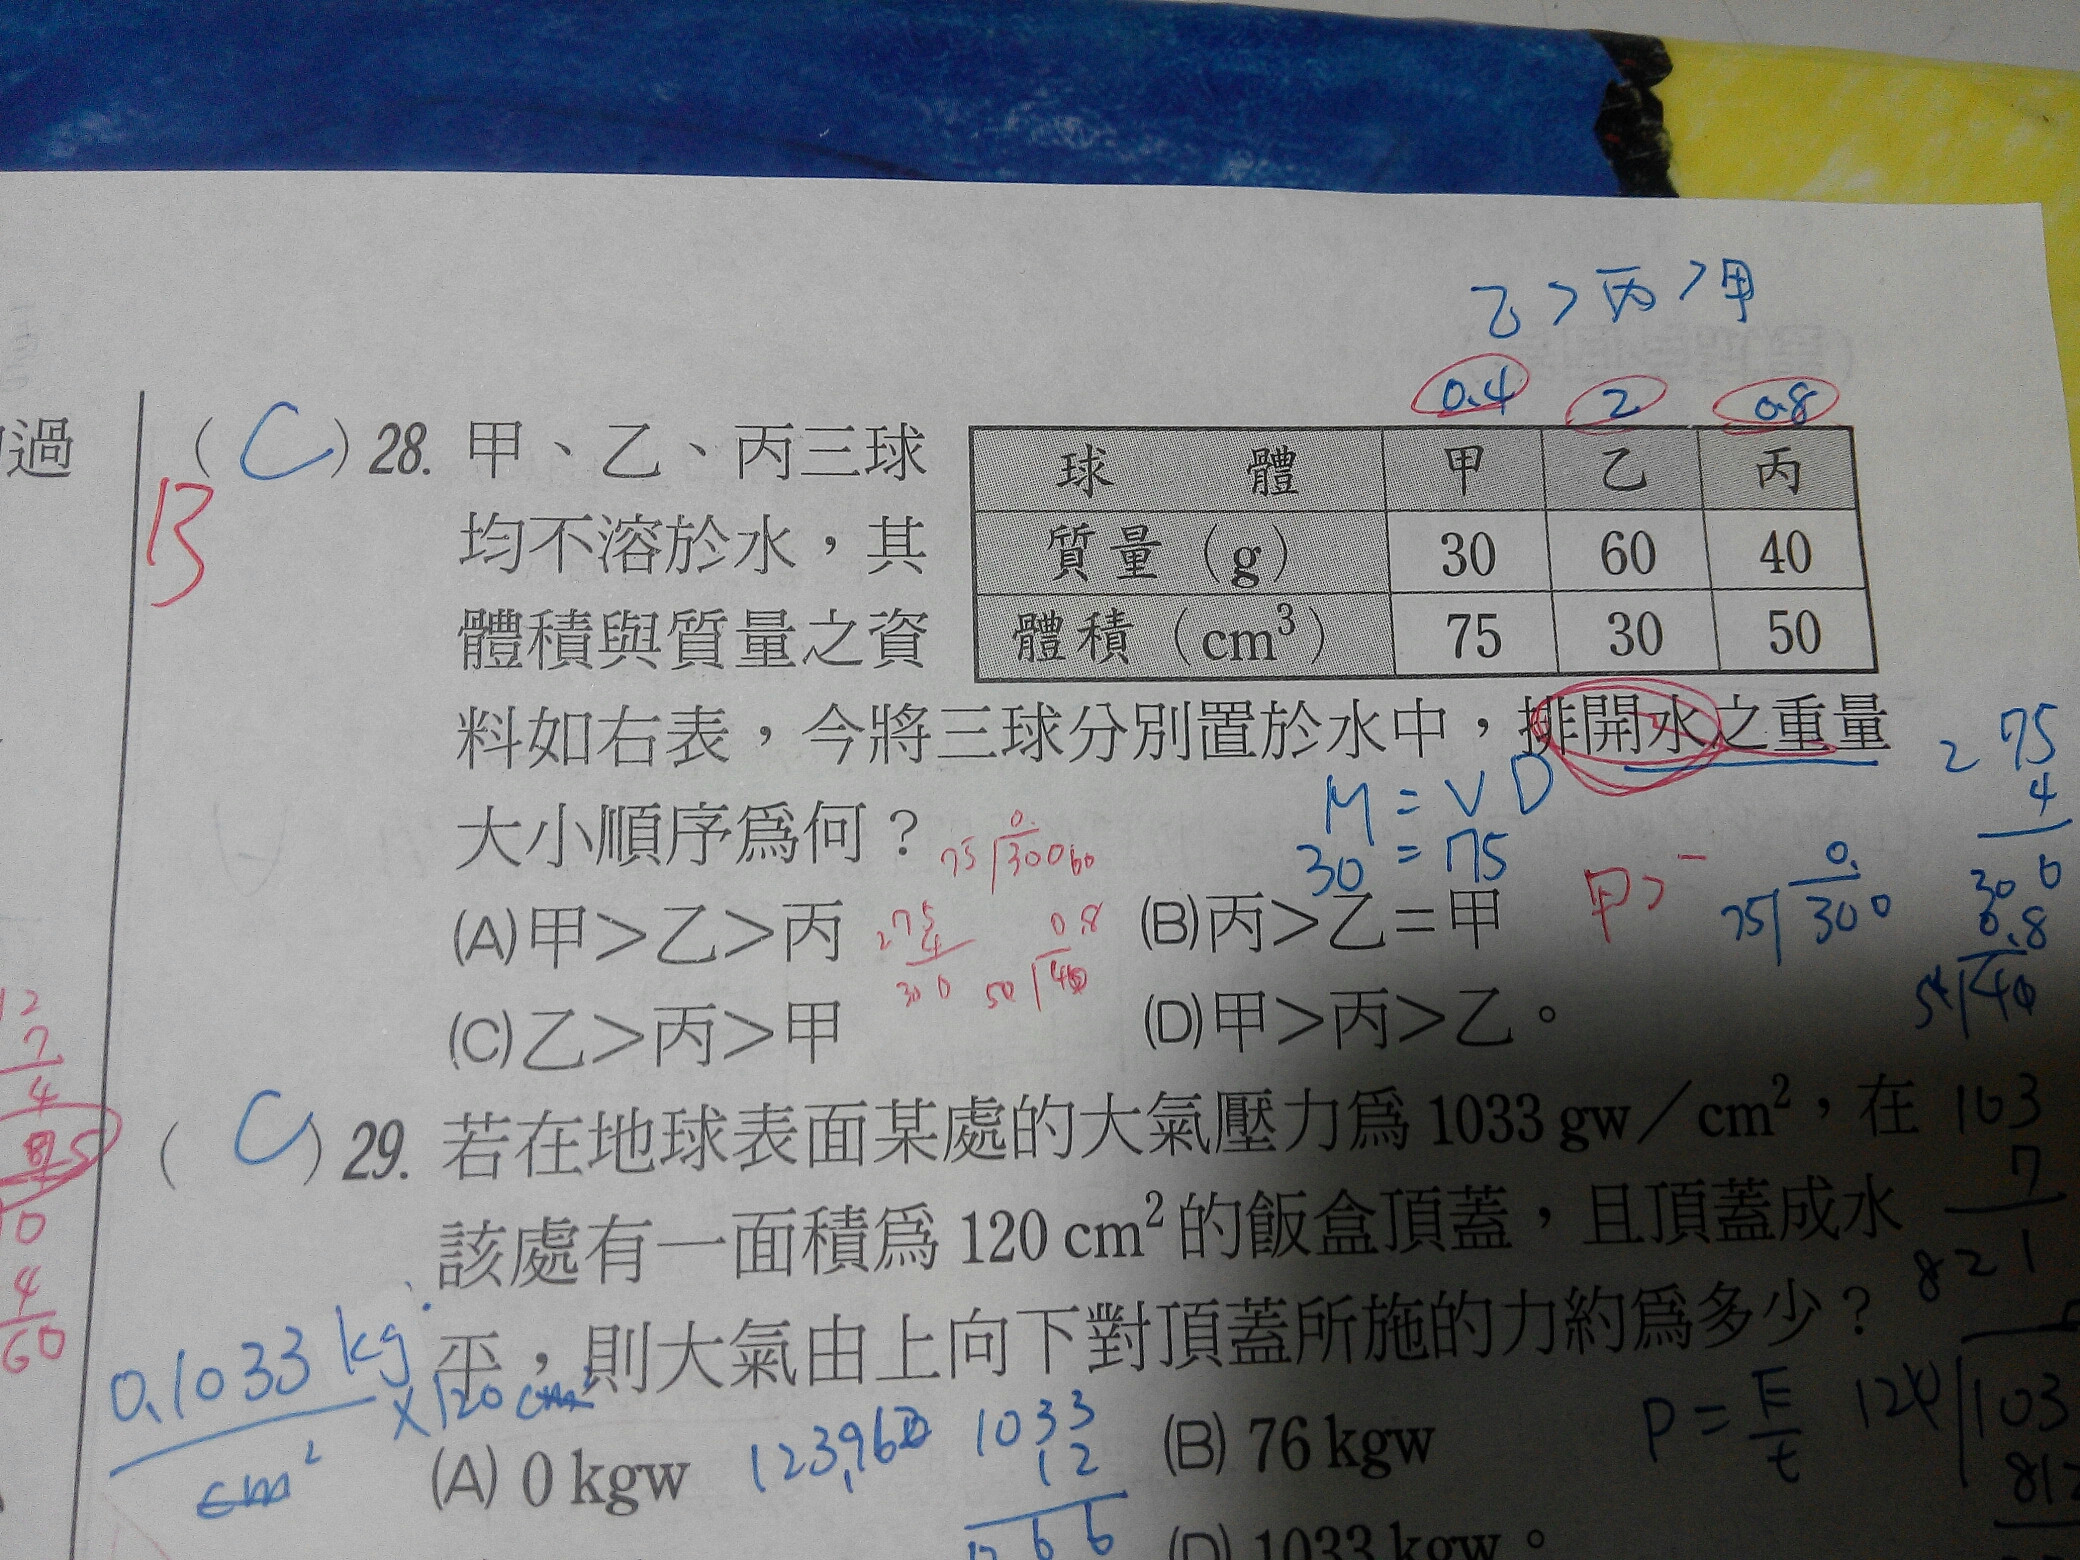 乙>丙>甲
0.4 2 0.8
過
(C) 28. 甲、乙、丙三球
B
球 體 甲 乙 丙
均不溶於水，其
質量（g） 30 60 40
體積與質量之資
體積（cm³） 75 30 50
料如右表，今將三球分別置於水中，排開水之重量
大小順序爲何？
M = V D
30 = 75
2 75
4
300
75 300
0.8
50 40
甲>
75 300
2 75
4
300
0.8
50 40
(A)甲＞乙＞丙 (B)丙＞乙＝甲
(C)乙＞丙＞甲 (D)甲＞丙＞乙。
12
7
4
0
4
60
(C) 29. 若在地球表面某處的大氣壓力爲 1033 gw／cm²，在
該處有一面積爲 120 cm²的飯盒頂蓋，且頂蓋成水
平，則大氣由上向下對頂蓋所施的力約爲多少？
103
7
821
0.1033 kg
cm²
×120 cm²
(A) 0 kgw (B) 76 kgw
1033
12
P = F
t
124 103
(D) 1033 kgw。